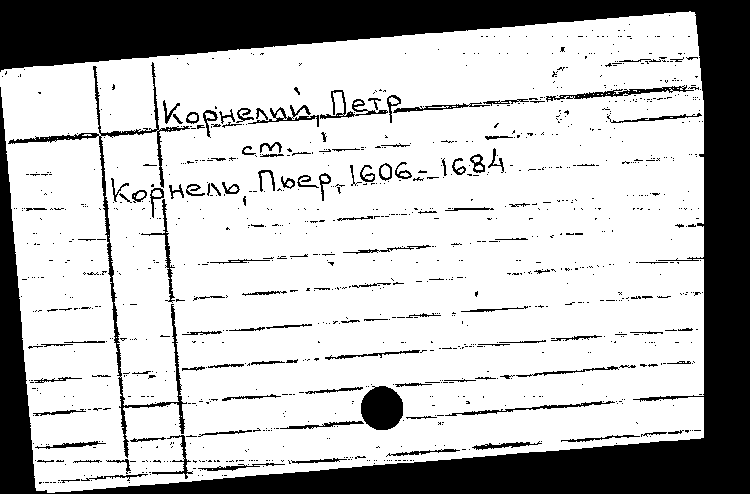 Корнелий, Петр
см.
Корнель, Пьер, 1606-1684